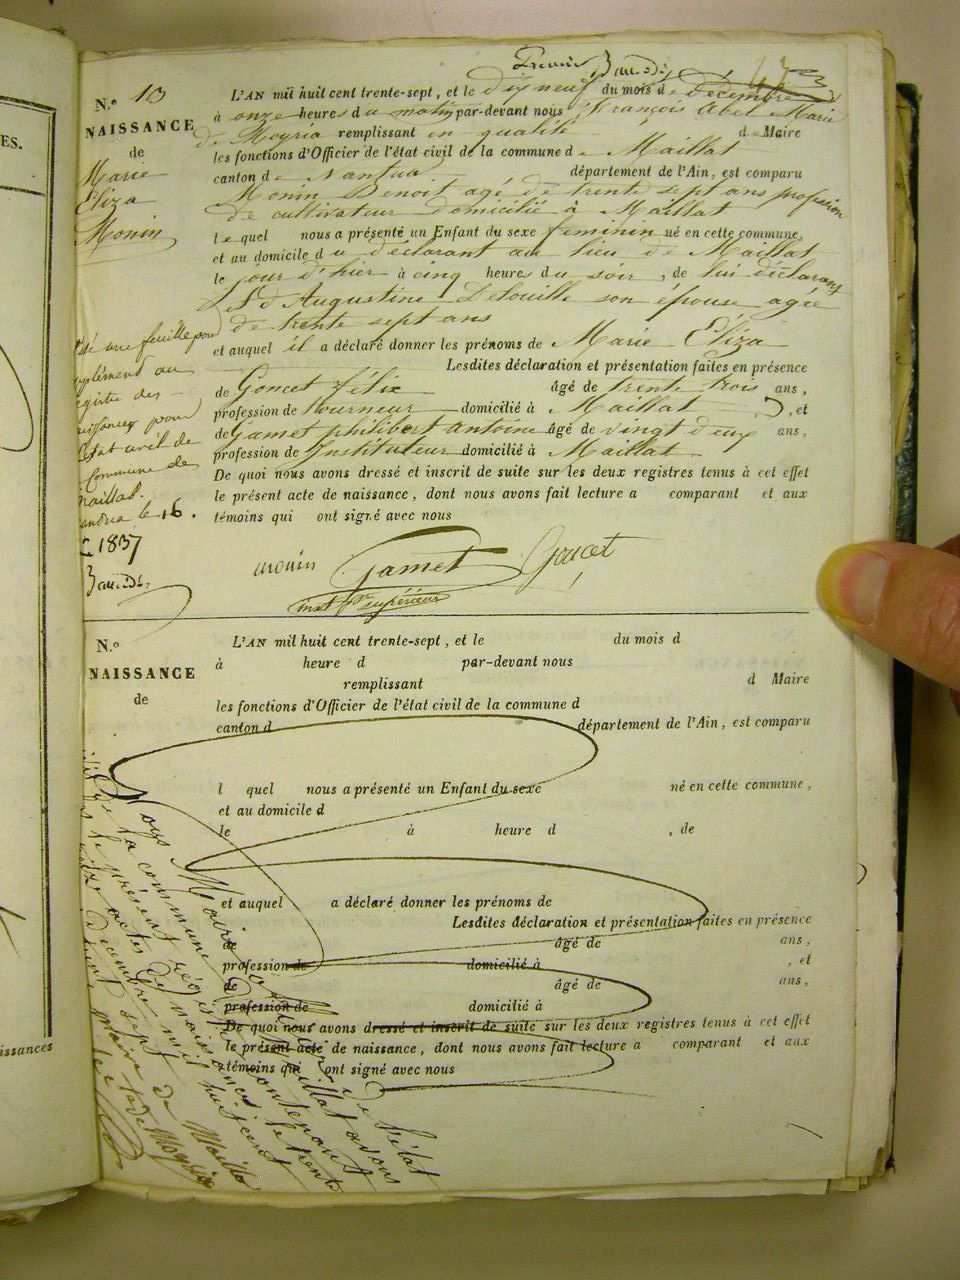 N.º 10
NAISSANCE
de
Marie
Eliza
Monin
L'AN mil huit cent trente-sept, et le dix neuf du mois de Décembre
à onze heures du matin par-devant nous François Abel Marie
de Moyria remplissant en qualité d Maire
les fonctions d'Officier de l'état civil de la commune de Maillat
canton de Nantua département de l'Ain, est comparu
Monin Benoit agé de trente sept ans profession
de cultivateur domicilié à Maillat
lequel nous a présenté un Enfant du sexe feminin né en cette commune,
et au domicile du déclarant au lieu de Maillat
le jour d'hier à cinq heures du soir, de lui déclarant
et d'Augustine son épouse agée
de trente sept ans
et auquel il a déclaré donner les prénoms de Marie Eliza
Lesdites déclaration et présentation faites en présence
de Goncet félix âgé de trente trois ans,
profession de tourneur domicilié à Maillat, et
de Gamet philibert antoine âgé de vingt deux ans,
profession de Instituteur domicilié à Maillat
De quoi nous avons dressé et inscrit de suite sur les deux registres tenus à cet effet
le présent acte de naissance, dont nous avons fait lecture a comparant et aux
témoins qui ont signé avec nous
une feuille pour
supplément au
registre des
naissances pour
l'état civil de
Commune de
Maillat.
le 16.
1837
monin Gamet Goncet
inst supérieur
N.º
NAISSANCE
de
L'AN mil huit cent trente-sept, et le du mois d
à heure d par-devant nous
remplissant d Maire
les fonctions d'Officier de l'état civil de la commune d
canton d département de l'Ain, est comparu
l quel nous a présenté un Enfant du sexe né en cette commune,
et au domicile d
le à heure d , de
et auquel a déclaré donner les prénoms de
Lesdites déclaration et présentation faites en présence
de âgé de ans,
profession de domicilié à , et
de âgé de ans,
profession de domicilié à
De quoi nous avons dressé et inscrit de suite sur les deux registres tenus à cet effet
le présent acte de naissance, dont nous avons fait lecture a comparant et aux
témoins qui ont signé avec nous
Nous Maire officier de l'état
de la commune de Maillat avons
le présent registre contenant
actes de naissances le trente
décembre mil huit cent
trente sept
maire de Maillat
de Moyria
ES.
issances